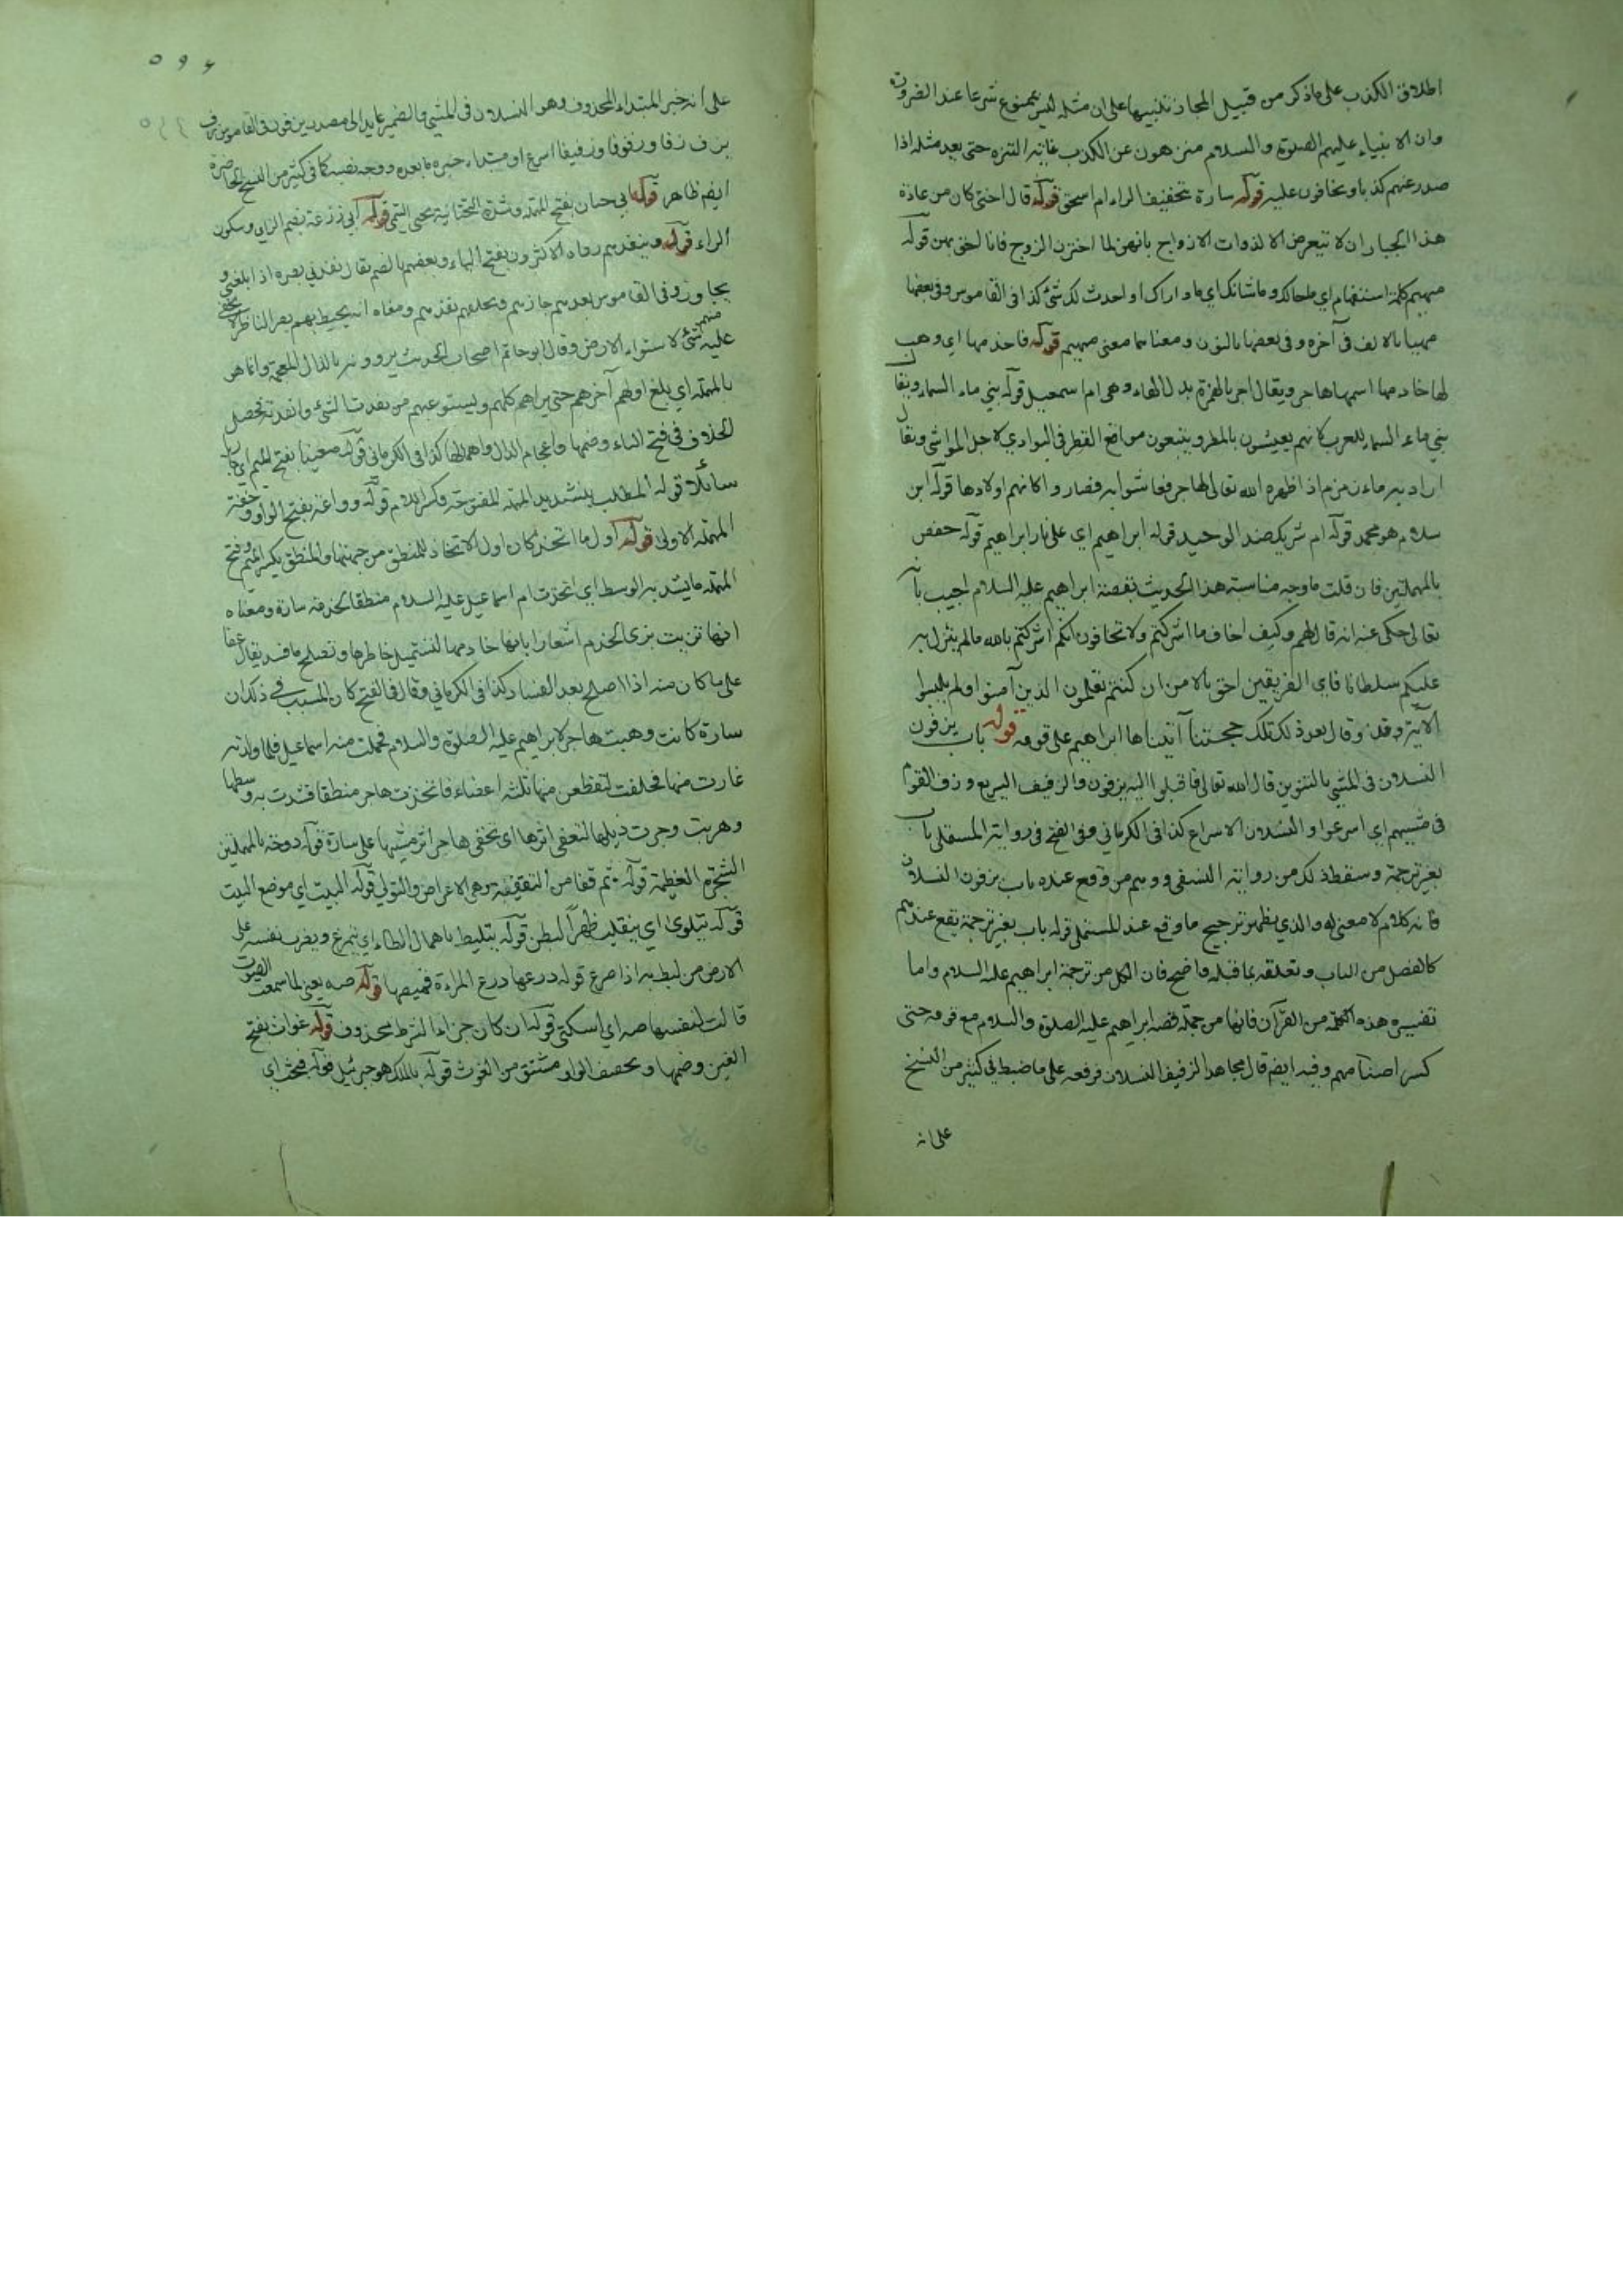 اطلاق الكذب على ماذكر من قبيل المجاز تنبيها على ان مثله ليس بممنوع شرعا عند الضرورة
وان الانبياء عليهم الصلوة والسلام منزهون عن الكذب غاية التنزه حتى يعد مثله اذا
صدر عنهم كذبا ويخافون عليه قوله سارة بتخفيف الراء ام اسحق قوله قال اختى كان من عادة
هذا الجبار ان لا يتعرض الا لذوات الازواج بانهن لما اخترن الزوج فانا احق بهن قوله
مهيم كلمة استفهام اي ماحالك وماشانك اي ما وراك او احدث لك شئ كذا فى القاموس وفى بعضها
مهيا بالالف فى آخره وفى بعضها بالنون ومعناهما معنى مهيم قوله فاخدمها اي وهب
لها خادمها اسمها هاجر ويقال اجر بالهمزة بدل الهاء وهى ام اسمعيل قوله بني ماء السماء ويقال
بني ماء السماء للعرب لانهم يعيشون بالمطر ويتبعون مواضع القطر فى البوادي لاجل المواشى ويقال
اراد به ماء زمزم اذ اظهره الله تعالى لهاجر فعاشوا به فصاروا كانهم اولادها قوله ابن
سلام هو محمد قوله ام شريك ضد الوحيد قوله ابراهيم اي على نار ابراهيم قوله حفص
بالمهملتين فان قلت ماوجه مناسبة هذا الحديث بقصة ابراهيم عليه السلام اجيب بانه
تعالى حكى عنه انه قال لهم وكيف اخاف ما اشركتم ولا تخافون انكم اشركتم بالله مالم ينزل به
عليكم سلطانا فاي الفريقين احق بالامن ان كنتم تعلمون الذين آمنوا ولم يلبسوا
الآية وقال بعد ذلك وتلك حجتنا آتيناها ابراهيم على قومه قوله باب يزفون
النسلان فى المشي بالتنوين قال الله تعالى فاقبلوا اليه يزفون والزفيف السريع وزف القوم
فى مشيهم اي اسرعوا والنسلان الاسراع كذا فى الكرماني وفى الفتح فى رواية المستملى باب
بغير ترجمة وسقط ذلك من رواية النسفى ووهم من وقع عنده باب يزفون النسلان
فانه كلام لا معنى له والذي يظهر ترجيح ما وقع عند المستملى قوله باب بغير ترجمة يقع عندهم
كالفصل من الباب وتعلقه بما قبله واضح فان الكل من ترجمة ابراهيم عليه السلام واما
تفسيره هذه الكلمة من القرآن فانها من جملة قصة ابراهيم عليه الصلوة والسلام مع قومه حتى
كسر اصنامهم وفيه ايضم قال مجاهد الزفيف النسلان فرفعه على ماضبط في كثير من النسخ
على انه
۵۹۶
على انه خبر المبتداء المحذوف وهو النسلان فى المشي والضمير عايد الى مصدر يزفون فى القاموس زف
يزف زفا وزفوفا وزفيفا اسرع او مبتداء خبره ما بعده ووجه نصبه كما فى كثير من النسخ الحاضرة
ايضم ظاهر قوله ابي حيان بفتح المهملة وشدة التحتانية يحيى التيمي قوله ابي زرعة بضم الزاي وسكون
الراء قوله وينفذهم رواه الاكثرون بفتح الياء وبعضهم بالضم يقال نفذني بصره اذا بلغني و
يجاوزو فى القاموس نفذهم جازهم وتخلفهم ومعناه انه يحيط بهم بصر الناظر لا يخفى
عليه منهم شئ لاستواء الارض وقال ابو حاتم اصحاب الحديث يروونه بالذال المعجمة وانما هو
بالمهملة اي يبلغ اولهم آخرهم حتى يراهم كلهم ويستوعبهم من نفدت الشئ وانفدته تحصل
الخلاف فى فتح الياء وضمها واعجام الذال واهمالها كذا فى الكرمانى قوله معينا بفتح الميم اي جاريا
سائلا قوله المطلب بتشديد المهملة المفتوحة وكسر اللام قوله ووداعة بفتح الواو وخفة
المهملة الاولى قوله اول ما اتخذ كان اول الاتخاذ للمنطق من جهتها والمنطق بكسر الميم وفتح
المهملة مايشد به الوسط اي اتخذت ام اسماعيل عليه السلام منطقا لخدمة سارة ومعناه
انها تزيت بزى الخدم اشعارا بانها خادمها لتستميل خاطرها وتصلح مافسد يقال عفا
على ماكان منه اذا اصلح بعد الفساد كذا فى الكرماني وقال فى الفتح كان السبب فى ذلك ان
سارة كانت وهبت هاجر لابراهيم عليه الصلوة والسلام فحملت منه اسماعيل فلما ولدته
غارت منها فحلفت لتقطعن منها ثلثه اعضاء فاتخذت هاجر منطقا فشدت به وسطها
وهربت وجرت ذيلها لتعفى اثرها اى تخفى هاجر اثر مشيها على سارة قوله دوحة بالمهملتين
الشجرة العظيمة قوله ثم قفا من التقفية وهى الاعراض والتولى قوله البيت اي موضع البيت
قوله يتلوى اي ينقلب ظهراً لبطن قوله يتلبط باهمال الطاء اي يتمرغ ويضرب نفسه على
الارض من لبط به اذا صرع قوله درعها درع المراءة قميصها قوله صه يعنى لما سمعت الصوت
قالت لنفسها صه اي اسكتى قوله ان كان جزاء الشرط محذوف قوله غواث بفتح
الغين وضمها وبخفيف الواو مشتق من الغوث قوله بالملك هو جبرئيل قوله فبحث اي